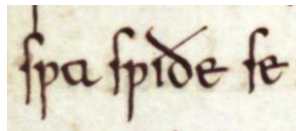 ſƿa ſƿiðe ſe